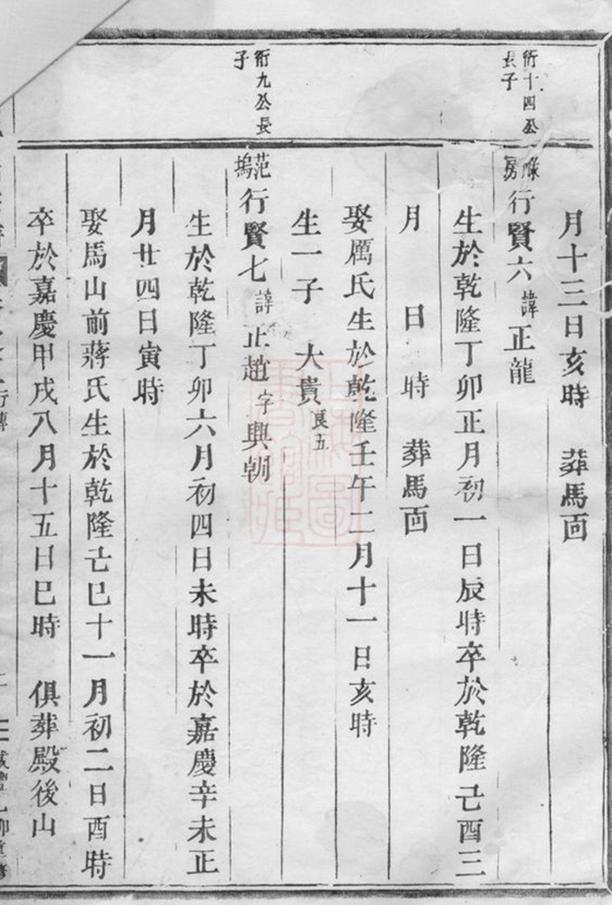 月十三日亥時　葬馬面
衍十四公
長子
房行賢六諱正龍
生於乾隆丁卯正月初一日辰時卒於乾隆己酉三
月　日　時　葬馬面
娶厲氏生於乾隆壬午二月十一日亥時
生一子　大貴良五
衍九公長
子
范塢行賢七諱正趙字興朝
生於乾隆丁卯六月初四日未時卒於嘉慶辛未正
月廿四日寅時
娶馬山前蔣氏生於乾隆己巳十一月初二日酉時
卒於嘉慶甲戌八月十五日巳時　俱葬殿後山